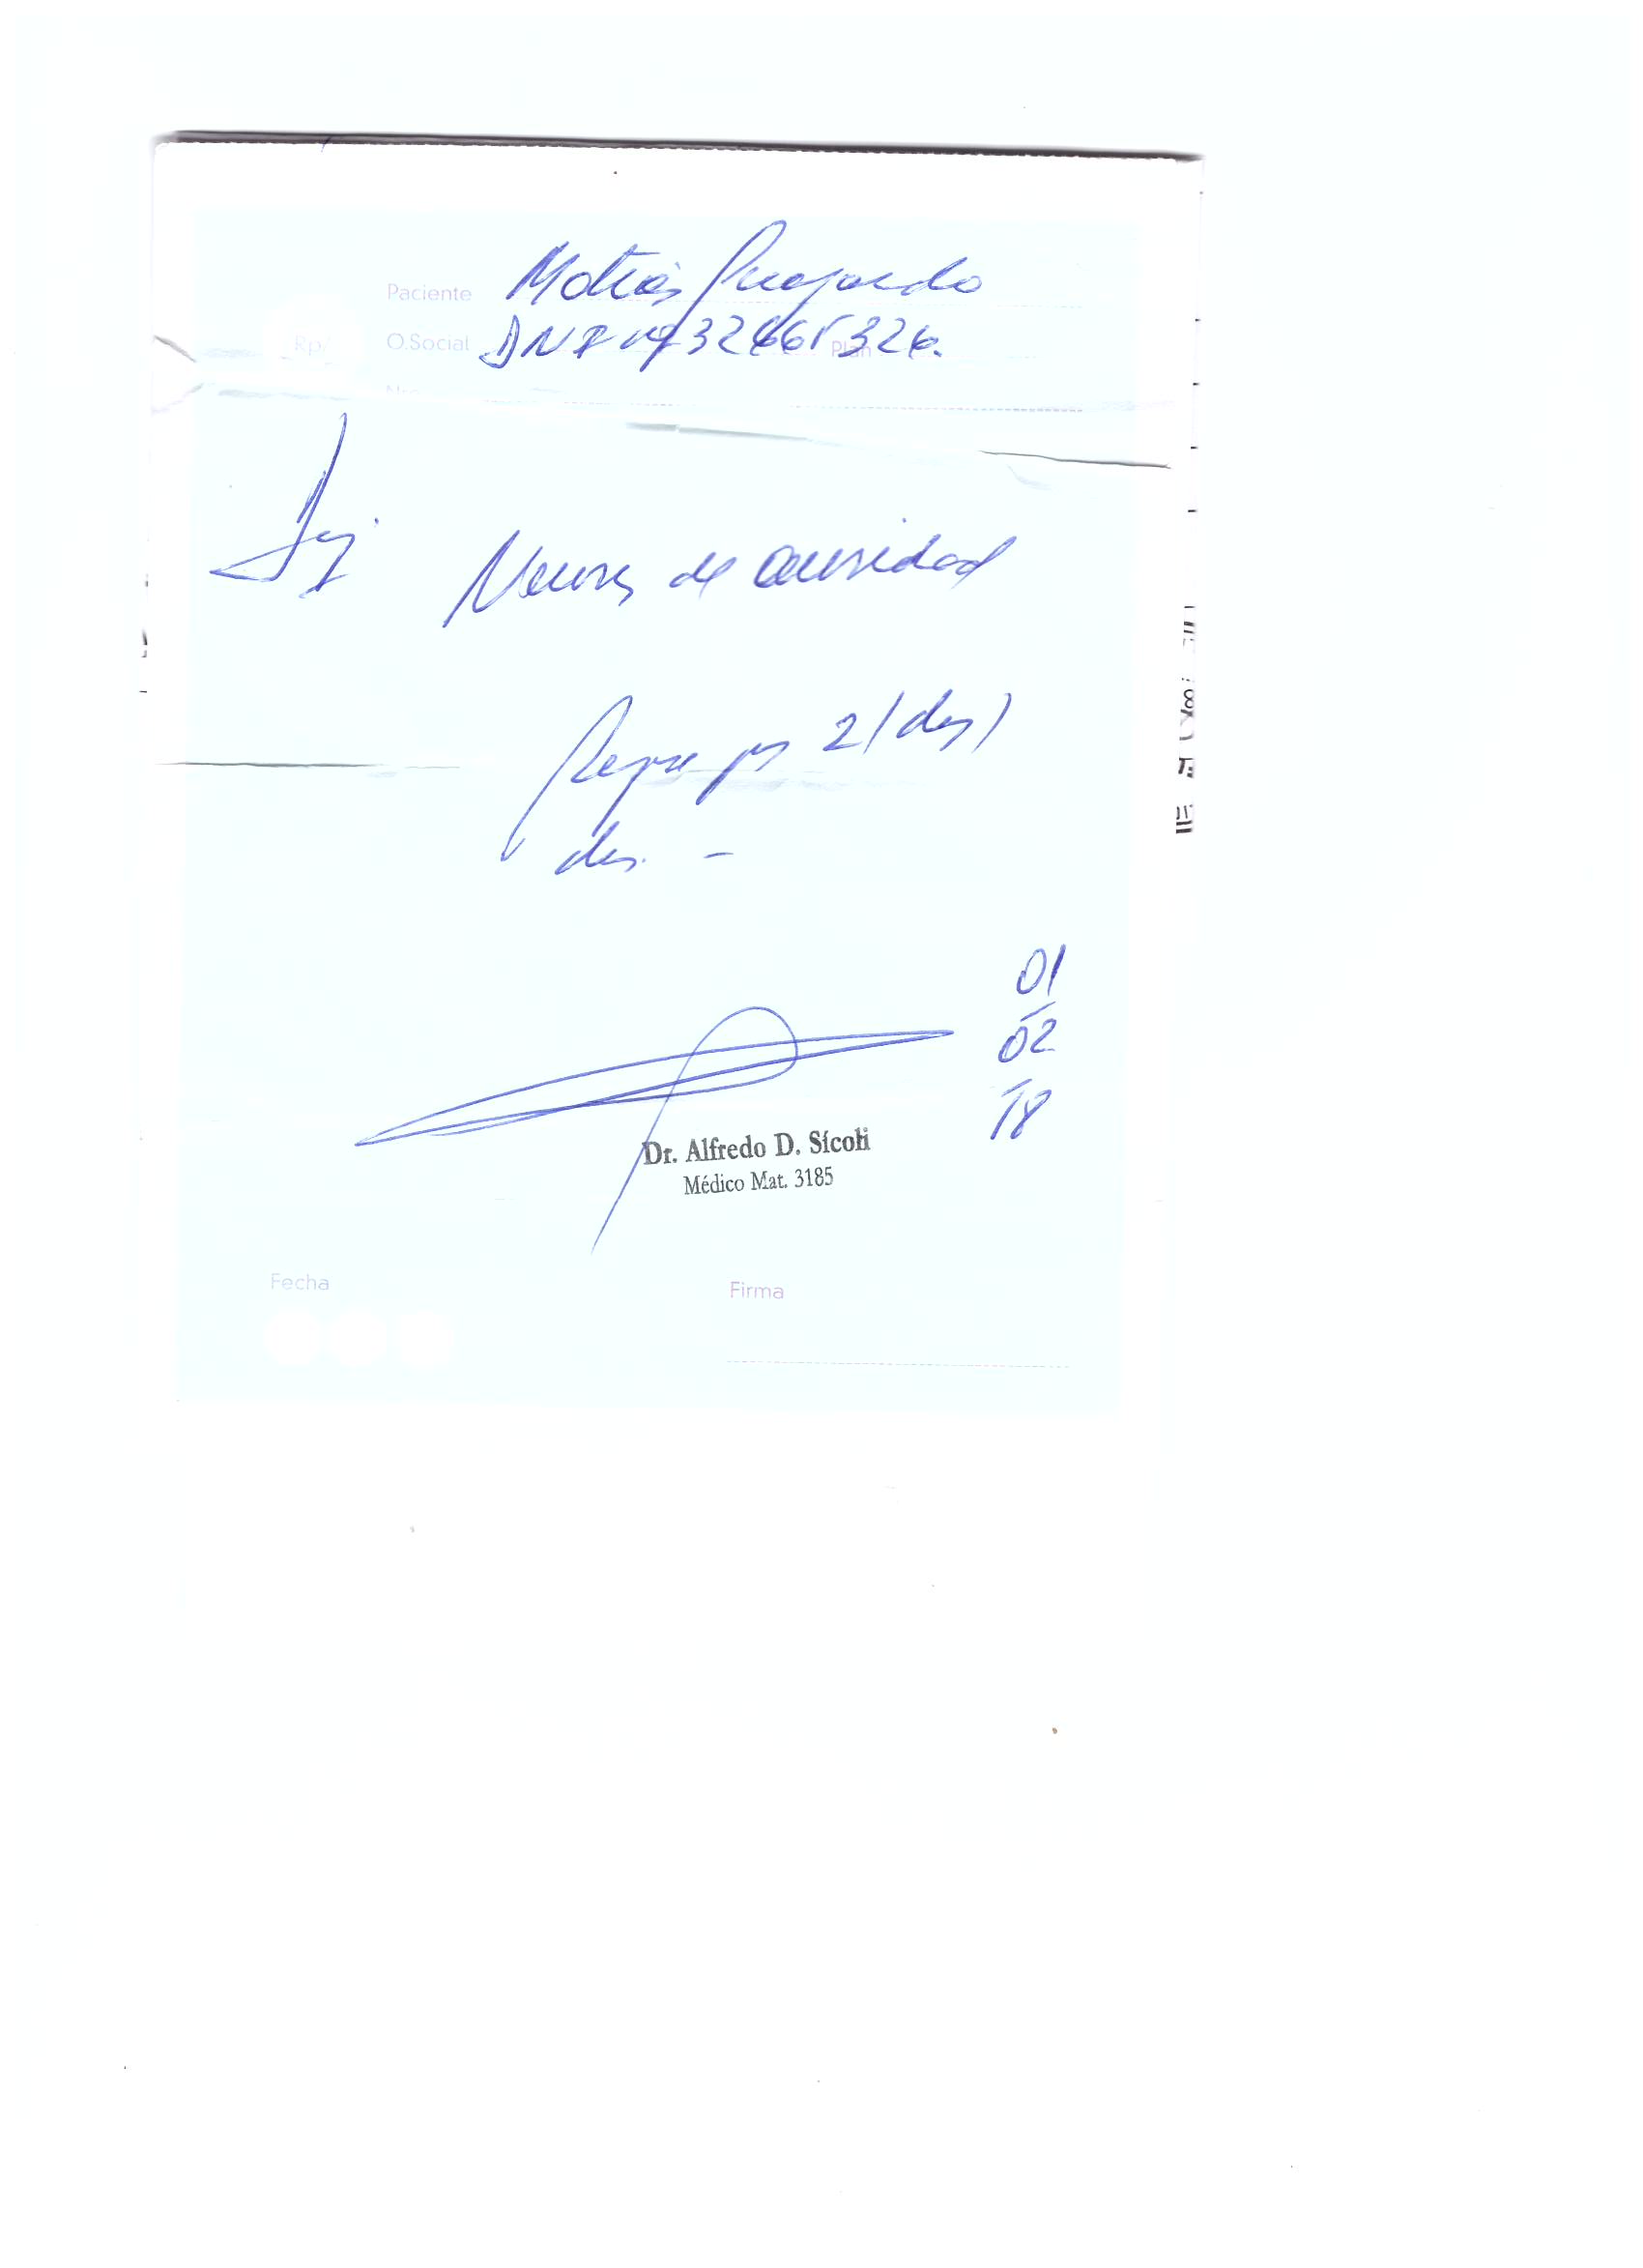 Paciente Matías
Rp/ O.Social DNI Nº 32665326. Plan
Nro
Neurosis de ansiedad
Reposo por 2 (dos)
días. -
01
02
18
Dr. Alfredo D. Sícoli
Médico Mat. 3185
Fecha
Firma